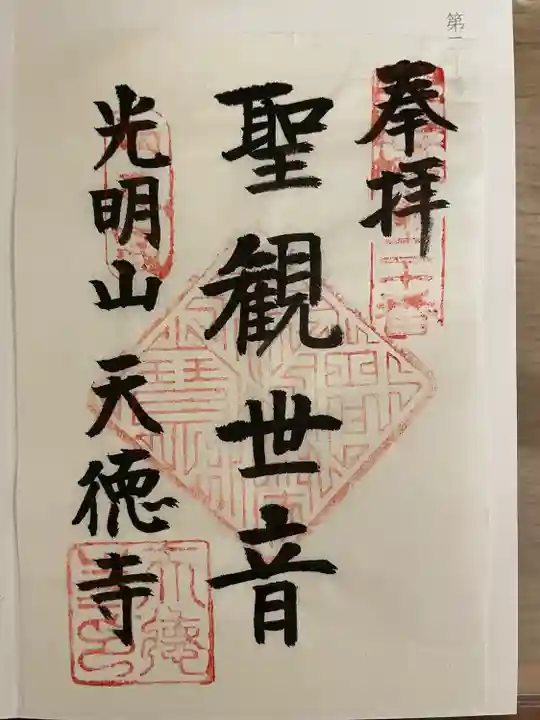 奉拝
聖観世音
光明山天徳寺
第